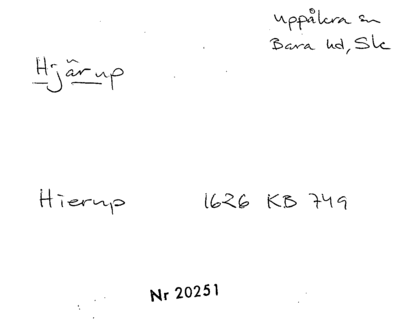 Uppåkra sn
Bara hd, Sk
Hjärup
Hierup 1626 KB 749
Nr 20251